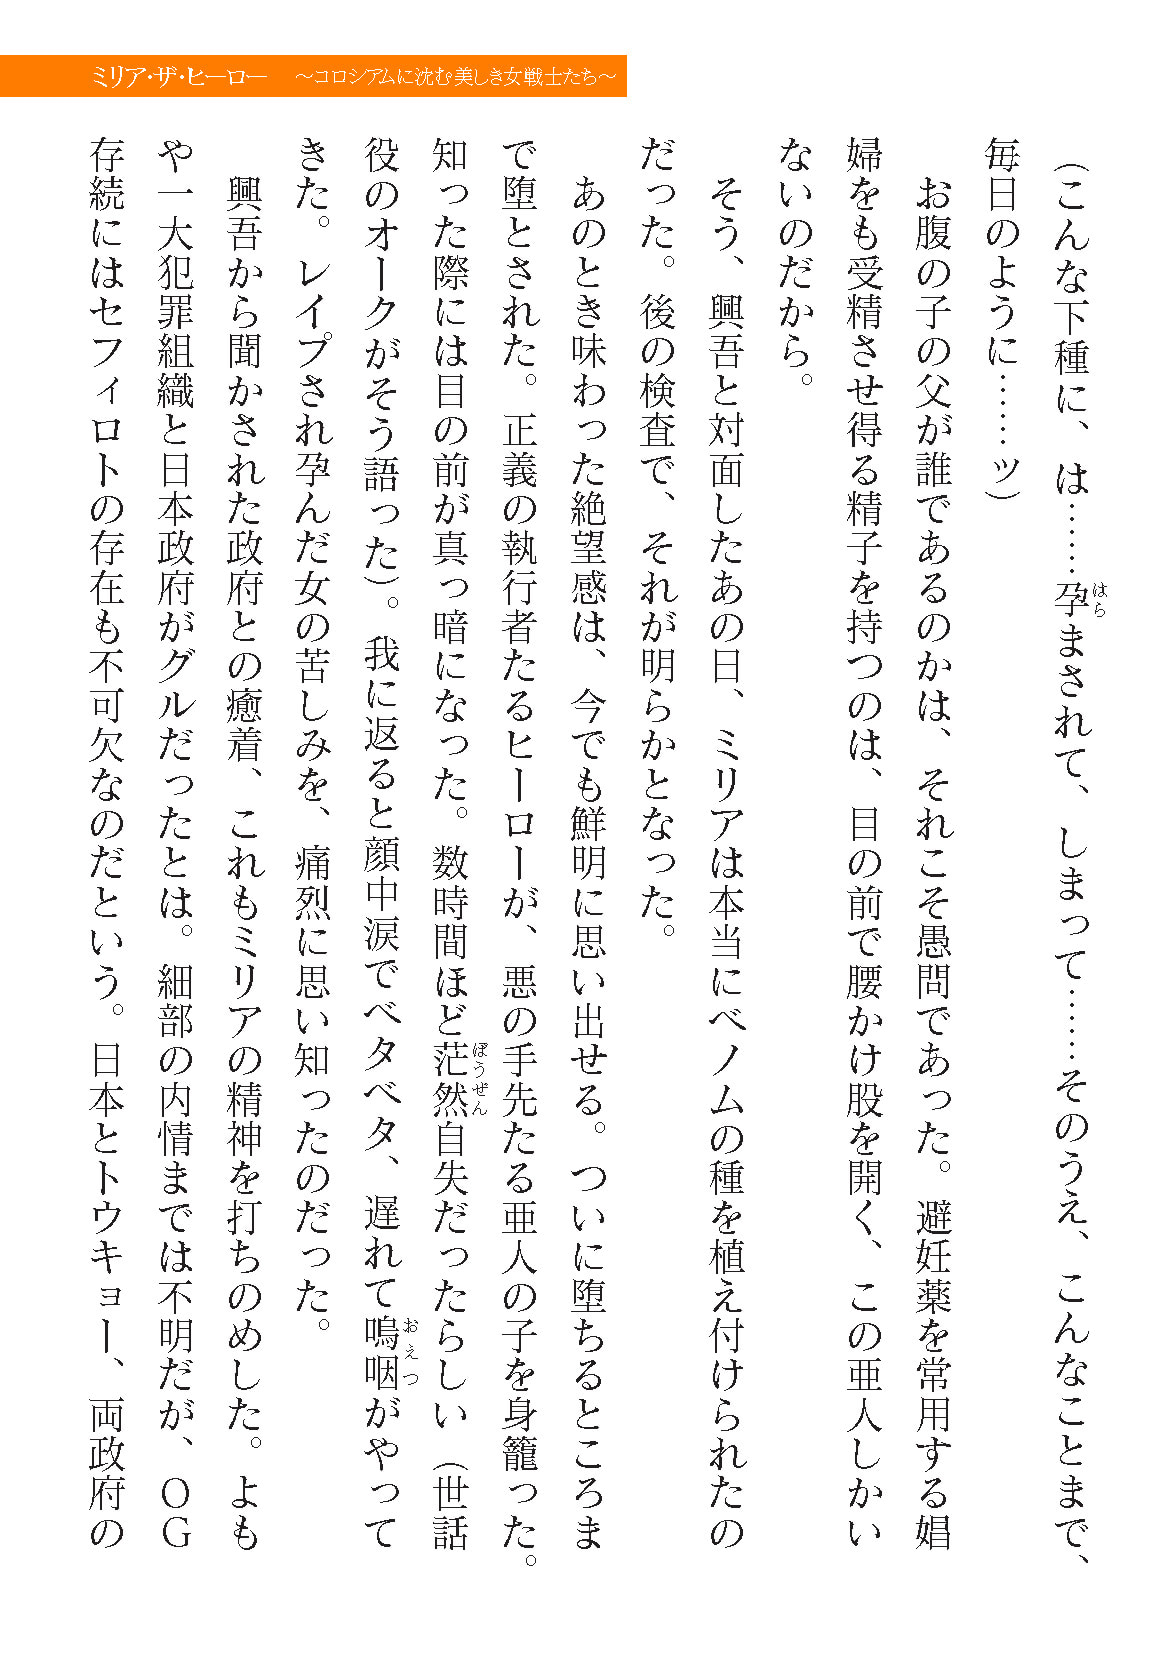 ミリア・ザ・ヒーロー　～コロシアムに沈む美しき女戦士たち～
（こんな下種に、は……孕まされて、しまって……そのうえ、こんなことまで、
毎日のように……ッ）
　お腹の子の父が誰であるのかは、それこそ愚問であった。避妊薬を常用する娼
婦をも受精させ得る精子を持つのは、目の前で腰かけ股を開く、この亜人しかい
ないのだから。
　そう、興吾と対面したあの日、ミリアは本当にベノムの種を植え付けられたの
だった。後の検査で、それが明らかとなった。
　あのとき味わった絶望感は、今でも鮮明に思い出せる。ついに堕ちるところま
で堕とされた。正義の執行者たるヒーローが、悪の手先たる亜人の子を身籠った。
知った際には目の前が真っ暗になった。数時間ほど茫然自失だったらしい（世話
役のオークがそう語った）。我に返ると顔中涙でベタベタ、遅れて嗚咽がやって
きた。レイプされ孕んだ女の苦しみを、痛烈に思い知ったのだった。
　興吾から聞かされた政府との癒着、これもミリアの精神を打ちのめした。よも
や一大犯罪組織と日本政府がグルだったとは。細部の内情までは不明だが、ＯＧ
存続にはセフィロトの存在も不可欠なのだという。日本とトウキョー、両政府の
はら
ぼうぜん
おえつ